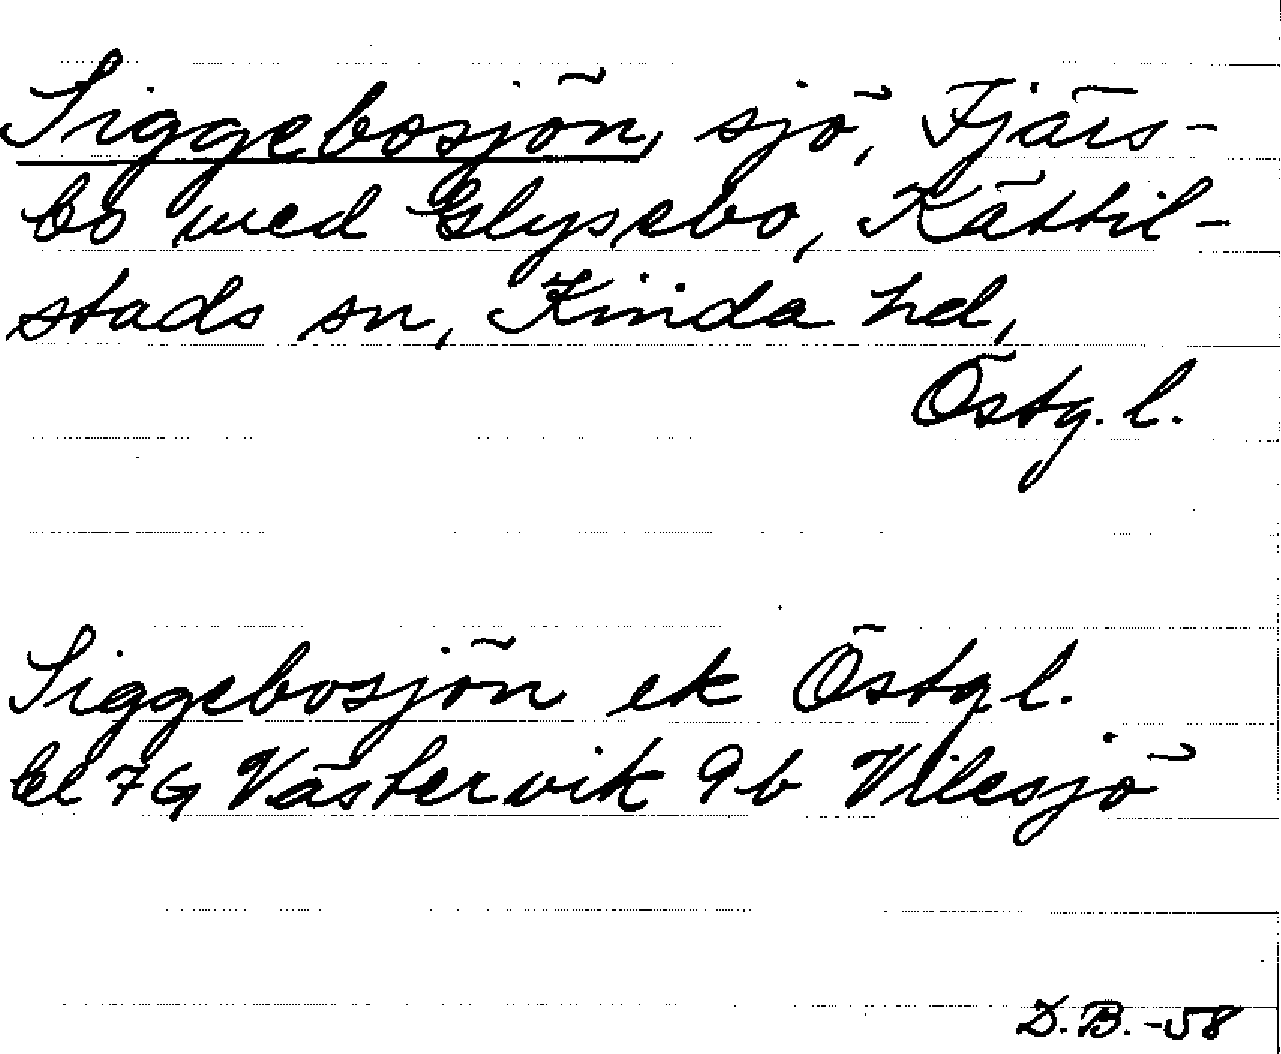 Siggebosjön, sjö, Fjärs-
bo med Glysebo, Kättil-
stads sn, Kinda hd,
Östg. l.
Siggebosjön ek Östgl.
bl 7G Västervik 9b Vilesjö
D.B. -58